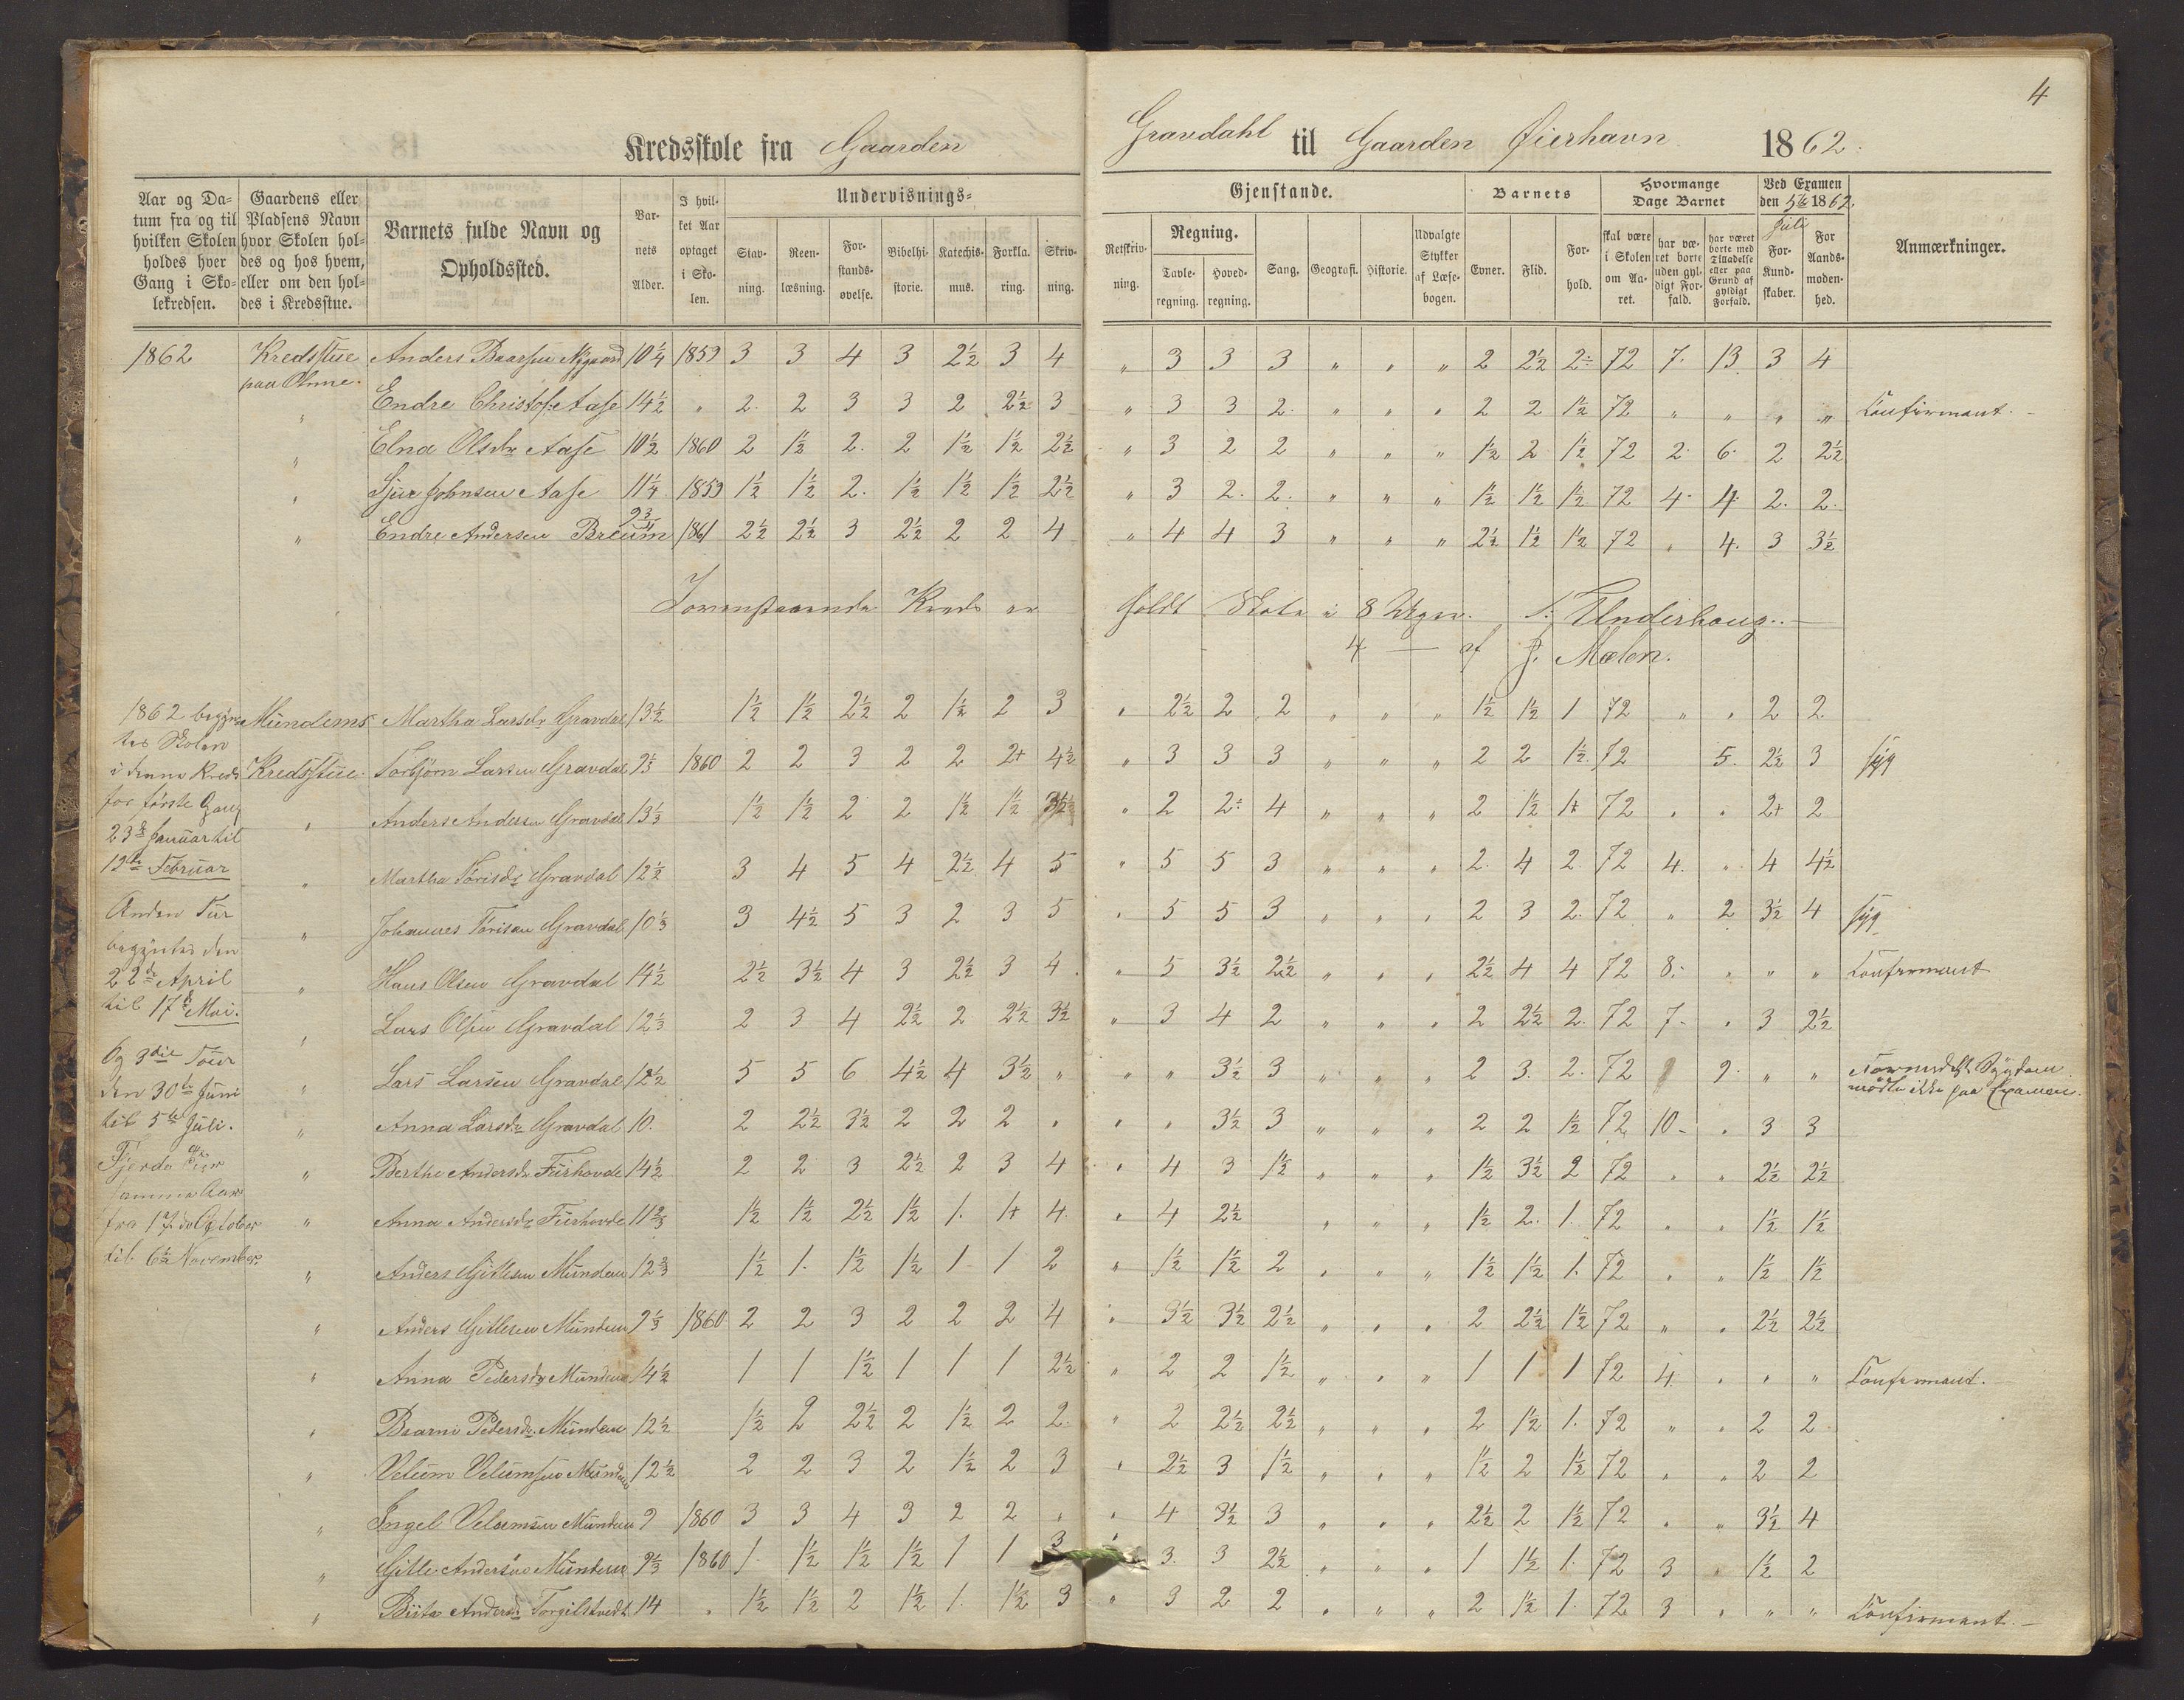 4
Kredsskole fra Gaarden Gravdahl til Gaarden Øierhavn 1862.
Aar og Datum fra og til hvilken Skolen holdes hver Gang i Skolekredsen.
Gaardens eller Pladsens Navn hvor Skolen holdes og hos hvem, eller om den holdes i Kredsstue.
Barnets fulde Navn og Opholdssted.
Barnets Alder.
I hvilket Aar optaget i Skolen.
Undervisnings-Gjenstande.
Stavning. Reenlæsning. Forstandsøvelse. Bibelhistorie. Katechismus. Forklaring. Skrivning. Retskrivning.
Regning. Tavleregning. Hovedregning. Sang. Geografi. Historie. Udvalgte Stykker af Læsebogen.
Barnets Evner. Flid. Forhold.
Hvormange Dage Barnet
skal være i Skolen om Aaret. har været borte uden gyldigt Forfald. har været borte med Tilladelse eller paa Grund af gyldigt Forfald.
Ved Examen den 5te Juli 1862.
For Kundskaber. For Aandsmodenhed.
Anmærkninger.
1862 Kredsstue Anders Baarsen Nygaard 10 1/4 1859 3 3 4 3 2 1/2 3 4 " 3 3 3 " " " 2 2 1/2 2÷ 72 7. 13. 3 4
paa Ohme.
" Endre Christofs: Aase 14 1/2 " 2. 2 3 3 2 2 1/2 3 " 3 3 2. " " " 2 2 1 1/2 72 " " " " Confirmant.
" Elna Olsdr Aase 10 1/2 1860 2 1 1/2 2. 2 1 1/2 1 1/2 2 1/2 " 3 2 2 " " " 1 1/2 2 1 1/2 72 2. 6. 2 2 1/2
" Sjur Johnsen Aase 11 1/4 1859 1 1/2 1 1/2 2. 1 1/2 1 1/2 1 1/2 2 1/2 " 3 2. 2. " " " 1 1/2 1 1/2 1 1/2 72 4. 4. 2. 2.
" Endre Andersen Breum 9 3/4 1861 2 1/2 2 1/2 3 2 1/2 2 2 4 " 4 4 3 " " " 2 1/2 1 1/2 1 1/2 72 " 4. 3 3 1/2
Iovenstaaende Kreds er holdt Skole i 8 Uger. S. Underhoug.
4 — af J. Mælen.
1862 begyntes Skolen i denne Kreds for første Gang 23de Januar til 19de Februar
Anden Tur begyntes den 22de April til 17de Mai.
Og 3die Tour den 30te Juni til 5te Juli.
Fjerde Tur samme Aar fra 17de October til 6te November.
Mundems Martha Larsdr Gravdal 13 1/2 1 1/2 1 1/2 2 1/2 2 1 1/2 2 3 " 2 1/2 2 2 " " " 1 1/2 1 1/2 1 72 " " 2 2
Kredsstue. Torbjørn Larsen Gravdal 9 1/3 1860 2 2 3 2 2 2+ 4 1/2 " 3 3 3 " " " 2 2 1 1/2. 72 5. 2 1/2 3 syg
" Anders Andersen Gravdal 13 1/3 1 1/2 1 1/2 2 2 1 1/2 1 1/2 " 2 2÷ 4 " " " 2 1 1/2 1+ 72 " " 2+ 2
" Martha Torisdr Gravdal 12 1/2 3 4 5 4 2 1/2 4 5 " 5 5 3 " " " 2. 4 2. 72 4. " 4 4 1/2
" Johannes Torisen Gravdal 10 1/3 3 4 1/2 5 3 2 3 5 " 5 5 3 " " " 2 3 2. 72 " 2 3 1/2 4 syg
" Hans Olsen Gravdal 14 1/2 2 1/2 3 1/2 4 3 2 1/2 3 4. " 5 3 1/2 2 1/2 " " " 2 1/2 4 4 72 8. " " " Confirmant
" Lars Olsen Gravdal 12 1/3 2 3 4 2 1/2 2 2 1/2 3 1/2 " 3 4 2 " " " 2 2 1/2 2. 72 7. " 3 2 1/2
" Lars Larsen Gravdal 12 1/2 5 5 6 4 1/2 4 3 1/2 " " " 3 1/2 3 " " " 2 3. 2. 72 9. " " Sygdom mødte ikke paa Examen.
" Anna Larsdr Gravdal 10. 2 2 1/2 3 1/2 2 2 2 " " " 3 1/2 3 " " " 2 2 1 1/2 72 10 " 3 3
" Berthe Andersdr Fürhovde 14 1/2 2 2 3 2 1/2 2 3 4 " 4 3 1 1/2 " " " 1 1/2 3 1/2 2 72 " " 2 1/2 2 1/2
" Anna Andersdr Fürhovde 11 2/3 1 1/2 1 1/2 2 1/2 1 1/2 1. 1+ 4 " 4 2 1/2 " " " 1 1/2 2. 1. 72 " " 1 1/2 1 1/2
" Anders Gitlesen Mundem 12 2/3 1 1/2 1. 1 1/2 1 1/2 1 1 2 " 1 1/2 1 1/2 2 " " " 1 1/2 1 1/2 1. 72 " " 1 1/2 1 1/2
" Anders Gitlesen Mundem 9 1/3 1860 2 2 3 2 2 2 4 " 3 1/2 3 1/2 2 1/2 " " " 2 2 1/2 1 1/2 72 " " 2 1/2 2 1/2
" Anna Pedersdr Mundem 14 1/2 1 1 1 1/2 1 1 1 2 1/2 " 2 2 1 1/2 " " " 1 1 1 72 4. " " " Confirmant.
" Baarni Pedersdr. Mundem 12 1/2 1 1/2 2 2 1/2 2 1 1/2 2 2. " 2 2 1/2 2 1/2 " " " 2 1 1/2 1. 72 " " 2 2
" Velum Velumsen Mundem 12 1/2 2 2 3 2 1 1/2 2 3 " 2 1/2 3 1 1/2 " " " 1 1/2 2 1 1/2 72 " " 2 2
" Ingel Velumsen Mundem 9 1860 3 3 4 3 2 2 " " 4 3 1/2 3 " " " 2 1/2 2 1 1/2 72 " " 3 1/2 4
" Gitle Andersen Mundem 9 1/3 1860 1. 1 1/2 1 1/2 1 1/2 1 1 3 " 3 3 2 1/2 " " " 1 1 1/2 1. 72 3 " 1 1/2 2
" Brita Andersdr Torgilstvedt 14 " 1 1/2 1 1/2 2 1 1/2 1. 1 1/2 3 " 3 2 2 " " " 2 1 1/2 1. 72 3 " " " Confirmant.